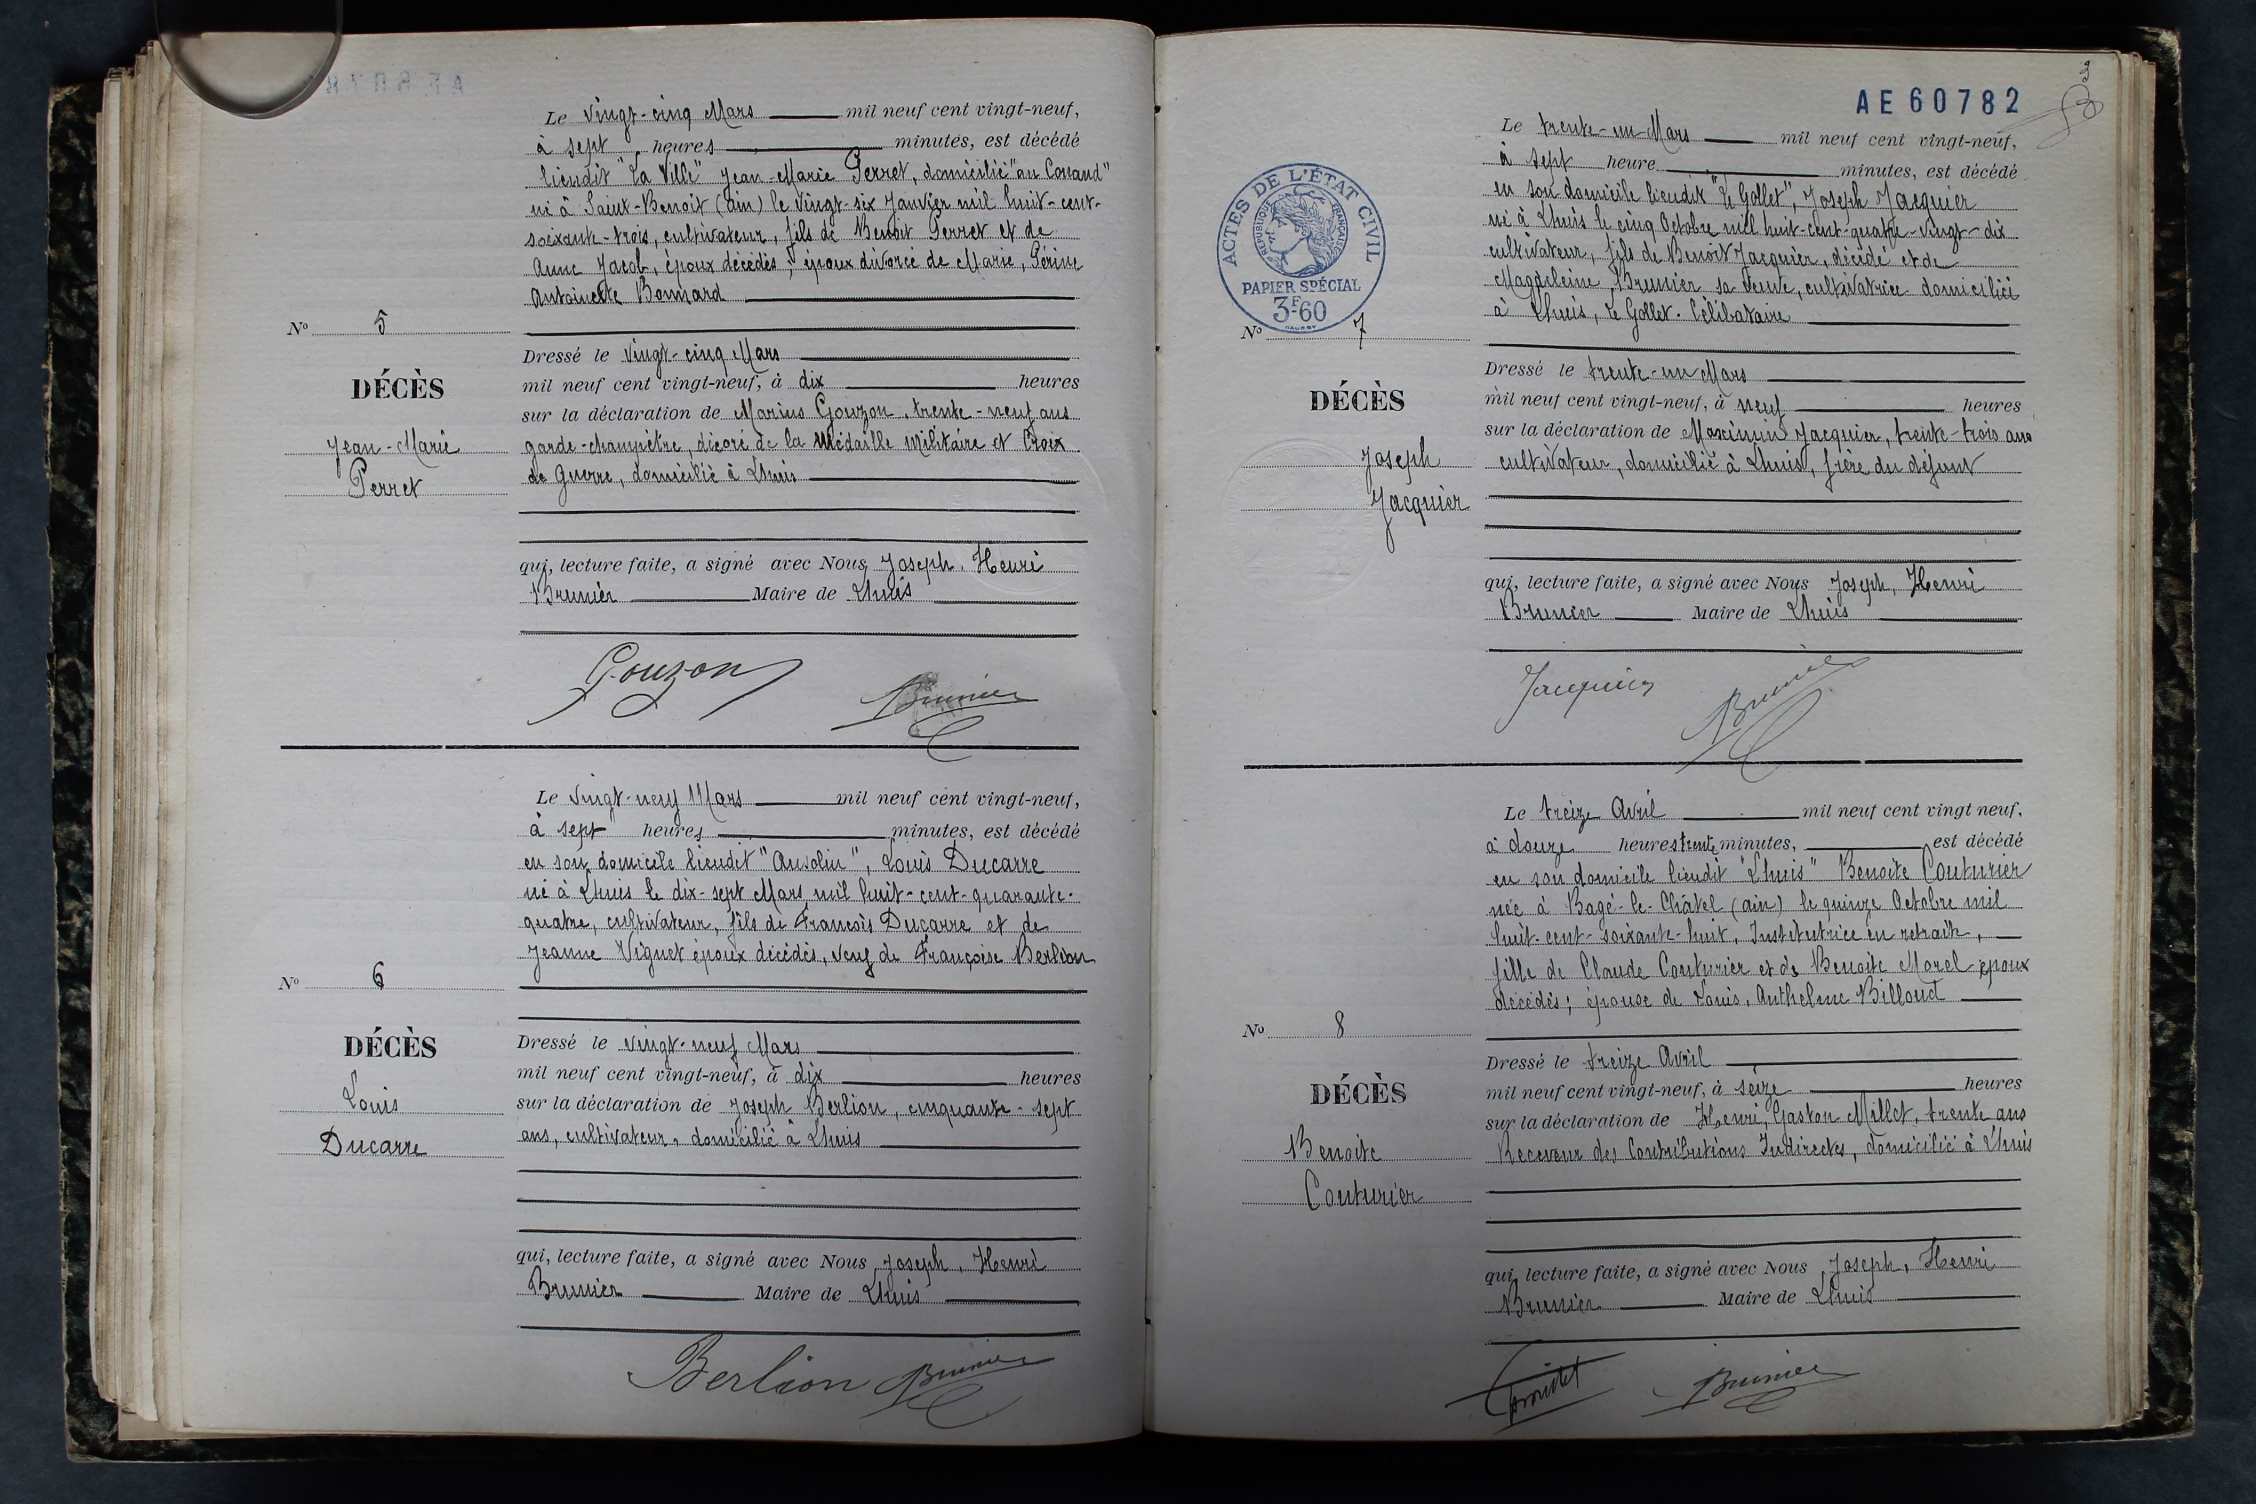 Le vingt-cinq Mars mil neuf cent vingt-neuf,
à sept heures minutes, est décédé
lieudit "La Ville" Jean-Marie Perret, domicilié "au Conand"
né à Saint-Benoit (Ain) le vingt-six Janvier mil huit-cent-
soixante-trois, cultivateur, fils de Benoit Perret et de
Anne Jacob, époux décédés; époux divorcé de Marie, Périne
Antoinette Bonnard
No 5
Dressé le vingt-cinq Mars
DÉCÈS
mil neuf cent vingt-neuf, à dix heures
sur la déclaration de Marius Gouzon, trente-neuf ans
Jean-Marie
garde-champêtre, décoré de la Médaille Militaire et Croix
Perret
de Guerre, domicilié à Lhuis
qui, lecture faite, a signé avec Nous Joseph, Henri
Brunier Maire de Lhuis
Gouzon Brunier
Le vingt-neuf Mars mil neuf cent vingt-neuf,
à sept heures minutes, est décédé
en son domicile lieudit "Ansolin", Louis Ducarre
né à Lhuis le dix-sept Mars mil huit-cent-quarante-
quatre, cultivateur, fils de François Ducarre et de
Jeanne Viguet époux décédés, veuf de Françoise Berlion
No 6
DÉCÈS
Dressé le vingt-neuf Mars
mil neuf cent vingt-neuf, à dix heures
Louis
sur la déclaration de Joseph Berlion, cinquante-sept
Ducarre
ans, cultivateur, domicilié à Lhuis
qui, lecture faite, a signé avec Nous Joseph, Henri
Brunier Maire de Lhuis
Berlion Brunier
3
AE 60782
ACTES DE L'ÉTAT CIVIL
RÉPUBLIQUE FRANÇAISE
PAPIER SPÉCIAL
3F60
Le trente-un Mars mil neuf cent vingt-neuf,
à sept heure minutes, est décédé
en son domicile lieudit "Le Gollet", Joseph Jacquier
né à Lhuis le cinq Octobre mil huit-cent-quatre-vingt-dix
cultivateur, fils de Benoit Jacquier, décédé et de
Magdeleine Brunier sa veuve, cultivatrice domiciliée
à Lhuis, Le Gollet. Célibataire
No 7
Dressé le trente-un Mars
DÉCÈS
mil neuf cent vingt-neuf, à neuf heures
sur la déclaration de Maximin Jacquier, trente-trois ans
Joseph
cultivateur, domicilié à Lhuis, frère du défunt
Jacquier
qui, lecture faite, a signé avec Nous Joseph, Henri
Brunier Maire de Lhuis
Jacquier Brunier
Le treize Avril mil neuf cent vingt neuf,
à douze heures trente minutes, est décédé
en son domicile lieudit "Lhuis" Benoite Couturier
née à Bagé-le-Châtel (ain) le quinze Octobre mil
huit-cent-soixante-huit, Institutrice en retraite,
fille de Claude Couturier et de Benoite Morel époux
décédés; épouse de Louis, Anthelme Billoud
No 8
Dressé le treize Avril
DÉCÈS
mil neuf cent vingt-neuf, à seize heures
sur la déclaration de Henri, Gaston Millet, trente ans
Benoite
Receveur des Contributions Indirectes, domicilié à Lhuis
Couturier
qui, lecture faite, a signé avec Nous Joseph, Henri
Brunier Maire de Lhuis
Brunier